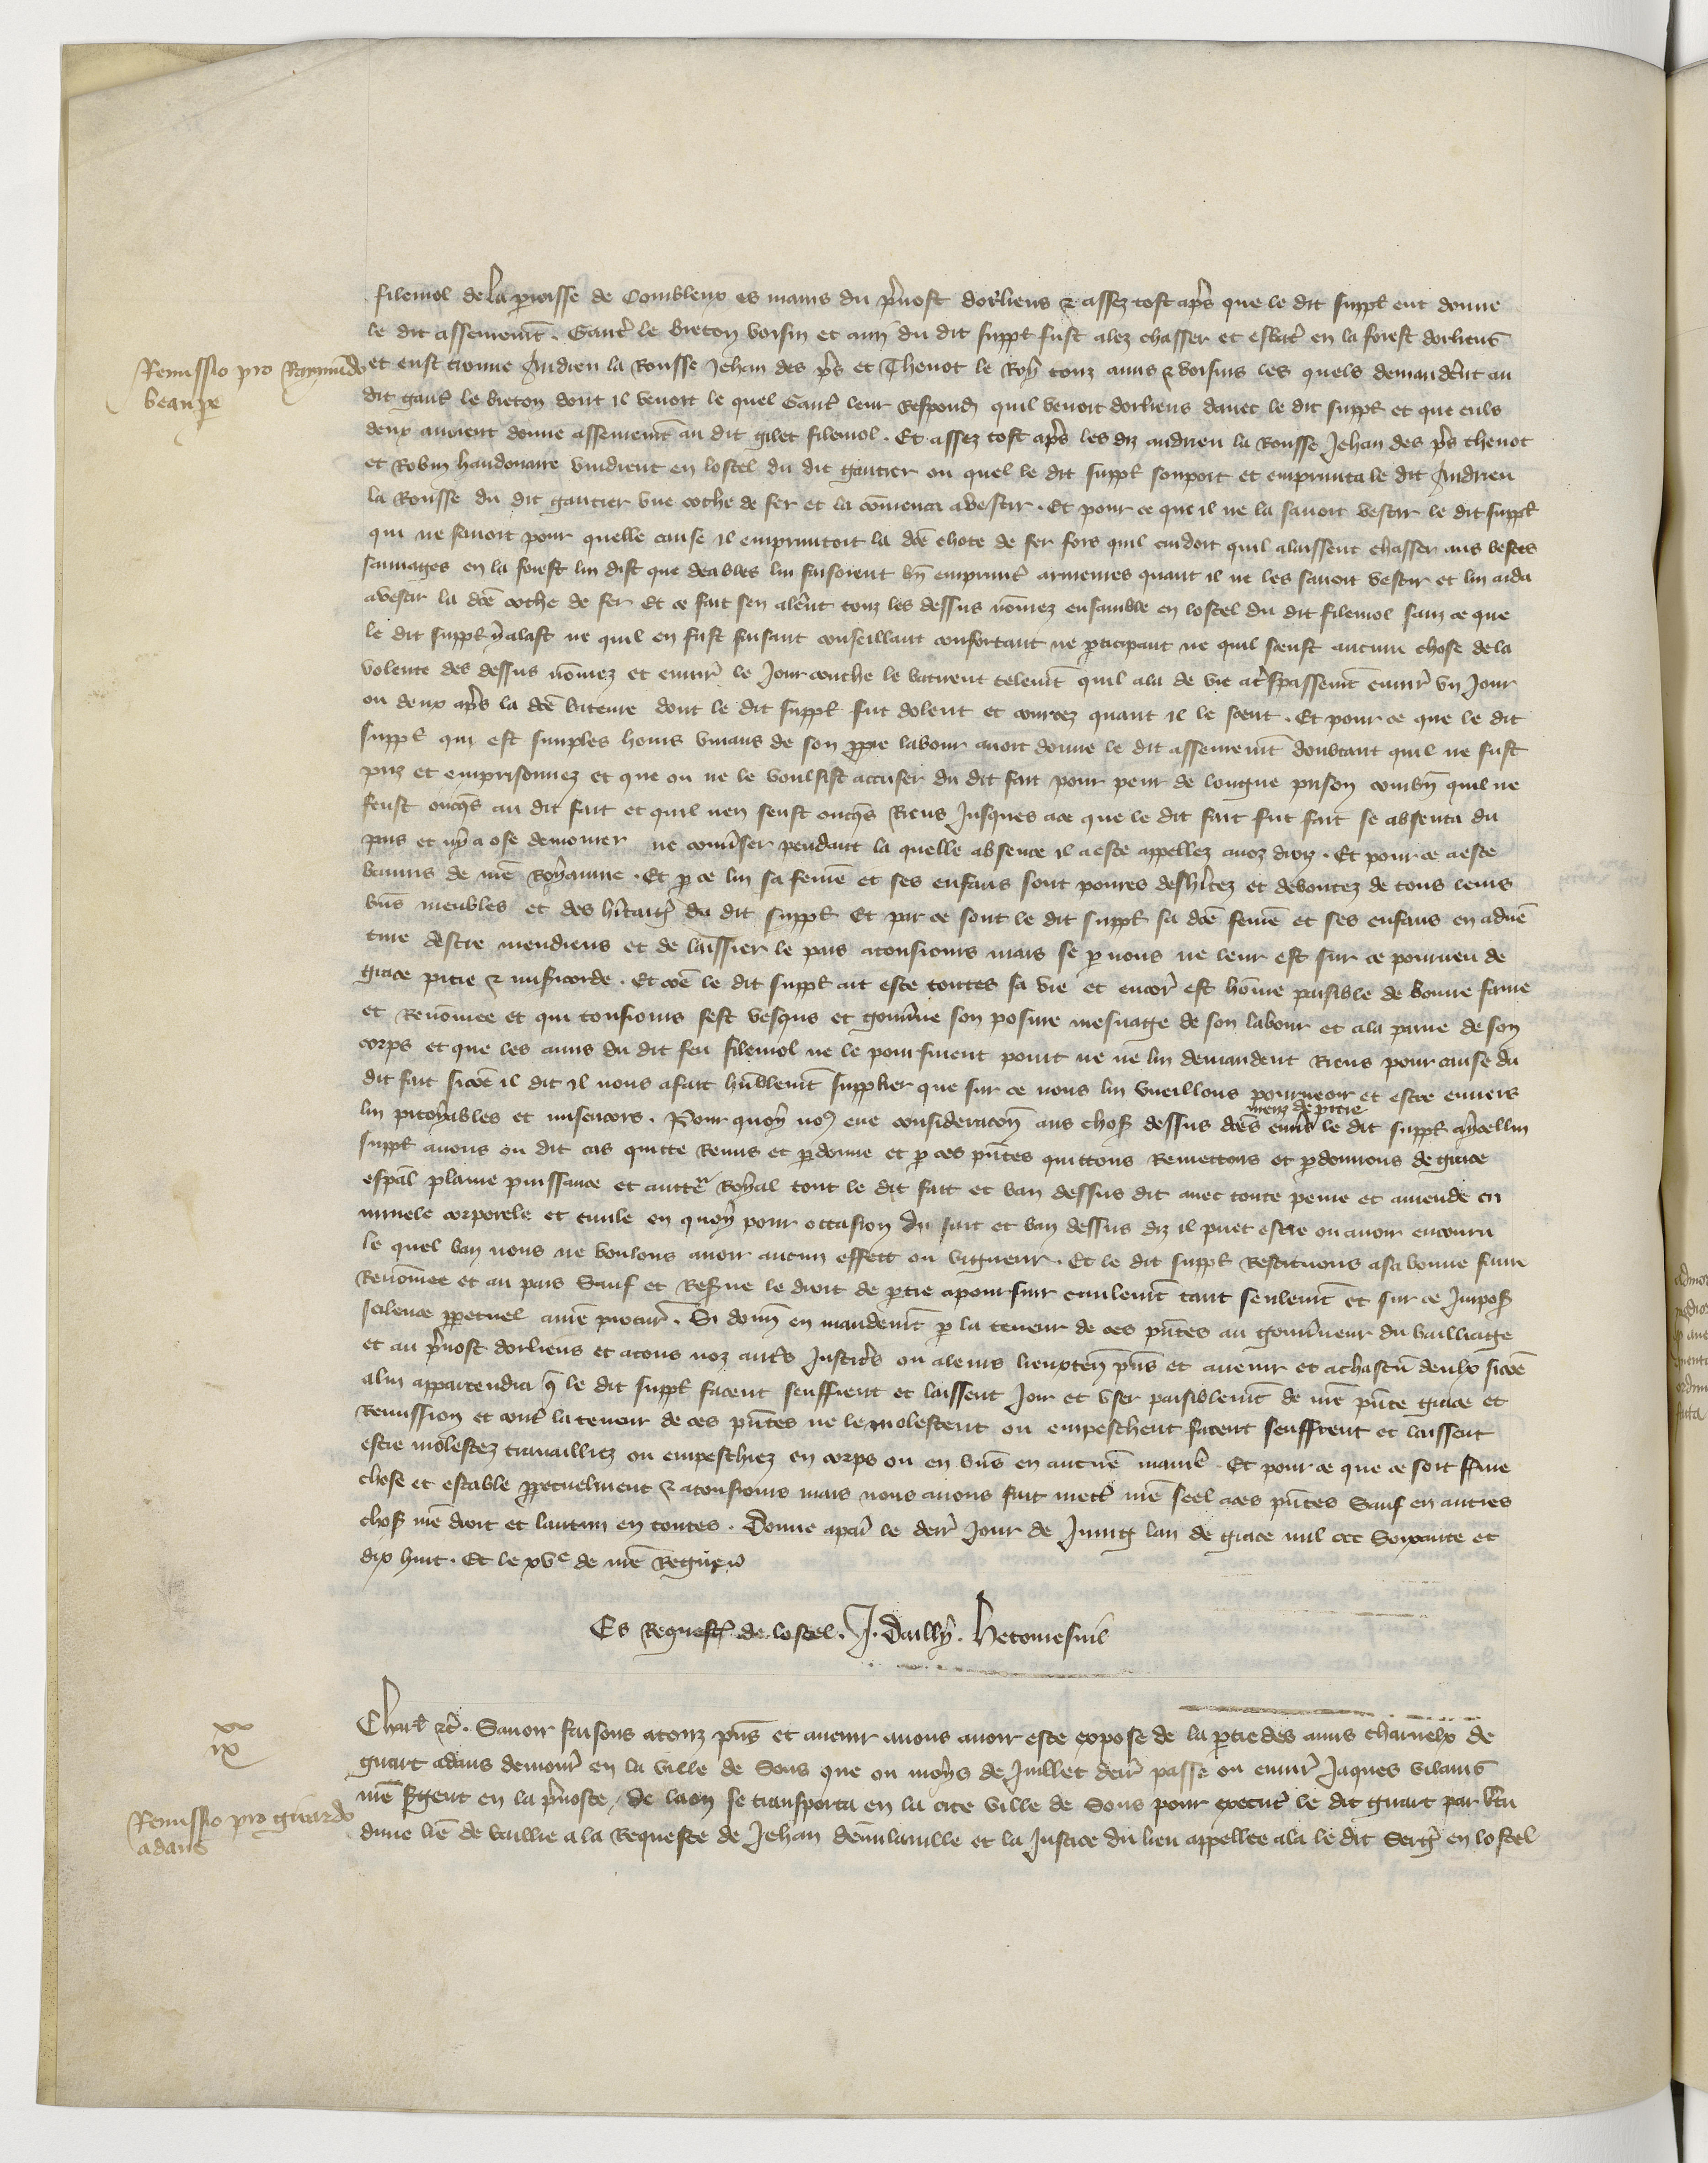 filemol de la p̱roisse de Combleux es mains du p̄uost dorliens & assez tost ap̄s que le dit supp̄l eut donne
le dit asseurem̄t . Gaut̄ le breton voisin et ami du dit supp̄l fust alez chasser et esbat̄ en la forest dorliens
Remissio pro Raymūdo
beaupe
et eust trouue Andrieu la Rousse Jehan des p̄s et Thenot le Roy touz amis & voisins les quels demand̄ent au
dit gaut̄ le breton dont il venoit le quel Gaut̄ leur Respondi quil venoit dorliens dauec le dit supp̄l et que euls
deux auoient donne asseurem̄t au dit gilet filemol . Et assez tost ap̄s les diz andrieu la Rousse Jehan des p̄s thenot
et Robin vindrent en lostel du dit gautier ou quel le dit supp̄l soupoit et emprunta le dit Andrieu
la Rousse du dit gautier vne cothe de fer et la cōmenca a vestir . Et pour ce que il ne la sauoit vestir le dit supp̄l
qui ne sauoit pour quelle cause il empruntoit la dc̄e chote de fer fors quil cuidoit quil alaissent chasser aus bestes
sauuages en la forest lui dist que deables lui faisoient bn̄ emprunt̄ armeures quant il ne les sauoit vestir et lui aida
a vestir la dc̄e cothe de fer Et ce fait sen al̄ent touz les dessus nōmez ensamble en lostel du dit filemol sanz ce que
le dit supp̄l y alast ne quil en fust faisant conseillant confortant ne p̱ticipant ne quil sceust aucune chose de la
volente des dessus nōmez et enuir̄ le Jour couche le batirent telem̄t quil ala de vie a t̄spassem̄t enuir̄ vn Jour
ou deux ap̄s la dc̄e bateure dont le dit supp̄l fut dolent et courcez quant il le sceut . Et pour ce que le dit
supp̄l qui est simples homs viuans de son p̱pre labour auoit donne le dit asseurem̄t doubtant quil ne fust
priz et emprisonnez et que on ne le voulsist accuser du dit fait pour peur de longue prison combn̄ quil ne
feust onq̄s au dit fait et quil nen seust onq̄s Riens Jusques a ce que le dit fait fut fait se absenta du
pais et ny a ose demourer ne conūser pendant la quelle absence il a este appellez a noz droiz . Et pour ce a este
bannis de n̄re Royaume . Et p̱ ce lui sa feme et ses enfans sont poures desh̄itez et deboutez de tous leurs
bn̄s meubles et des h̄itaiḡ du dit supp̄l Et par ce sont le dit supp̄l sa dc̄e feme et ses enfans en aduē
ture destre mendiens et de laissier le pais a tousiours mais se p̱ nous ne leur est sur ce pourueu de
grace pitie & mis̄icorde . Et cōe le dit supp̄l ait este toutes sa vie et encor̄ est hōme paisible de bonne fame
et Renōmee et qui tousiours sest vesquus et gouūne son mesnage de son labour et a la paine de son
corps et que les amis du dit feu filemol ne le poursuient point ne ne lui demandent Riens pour cause du
dit fait sicōe il dit Il nous a fait hūblem̄t supplier que sur ce nous lui vueillons pourueoir et estre enuers
lui pitoyables et misericors . Pour quoy noꝰ eue consideracōn aus chos̄ dessus dc̄es
meuz de pitie
enūs le dit supp̄l a ycellui
supp̄l auons ou dit cas quitte Remis et p̱donne et p̱ ces pn̄tes quittons Remettons et p̱donnons de grace
esp̄al plaine puissance et auttē Royal tout le dit fait et ban dessus dit auec toute peine et amende cri
minele corporele et ciuile en quoy pour occasion du fait et ban dessus diz il puet estre ou auoir encouru
le quel ban nous ne voulons auoir aucun effect ou vigueur . Et le dit supp̄l Restituons a sa bonne fame
Renōmee et au pais Sauf et Res̄ue le droit de p̱tie a poursuir ciuilem̄t tant seulem̄t et sur ce Impos̄
scilence p̱petuel a n̄re procur̄ . Si donn̄ en mandem̄t p̱ la teneur de ces pn̄tes au gouūneur du bailliage
et au p̄uost dorliens et a tous noz aut̄s Justic̄s ou a leurs lieuxten̄ pn̄s et auenir et a chascū deulx sicōe
a lui appartendra q̄ le dit supp̄l facent seuffrent et laissent Joir et vser paisiblem̄t de n̄re pn̄te grace et
Remission et cont̄ la teneur de ces pn̄tes ne le molestent ou empeschent facent seuffrent et laissent
estre molestez trauailliez ou empeschiez en corps ou en bn̄s en aucūe manie̅ . Et pour ce que ce soit ferme
chose et estable p̱petuelment & a tousiours mais nous auons fait mett̄ n̄re seel a ces pn̄tes Sauf en autres
chos̄ n̄re droit et lautrui en toutes . Donne a par̄ le derr̄ Jour de Juing lan de grace mil ccc Soixante et
dix huit . Et le xvᵉ de n̄re Regne
Es Request̄ de lostel . J . Dailly . Hetomesnil
xx
ix
Charl̄ &c̄ . Sauoir faisons a touz pn̄s et auenir a nous auoir este expose de la p̱tie des amis charnelx de
guiart adans demour̄ en la ville de Sons que ou moys de Juillet derr̄ passe ou enuir̄ Jaques vilains
Remissio pro guiardo
adans
n̄re s̄gent en la p̄uoste de laon se transporta en la dite ville de Sons pour execut̄ le dit guiart par v̄tu
dune lr̄e de baillie a la Requeste de Jehan et la Justice du lieu appellee ala le dit serḡ en lostel